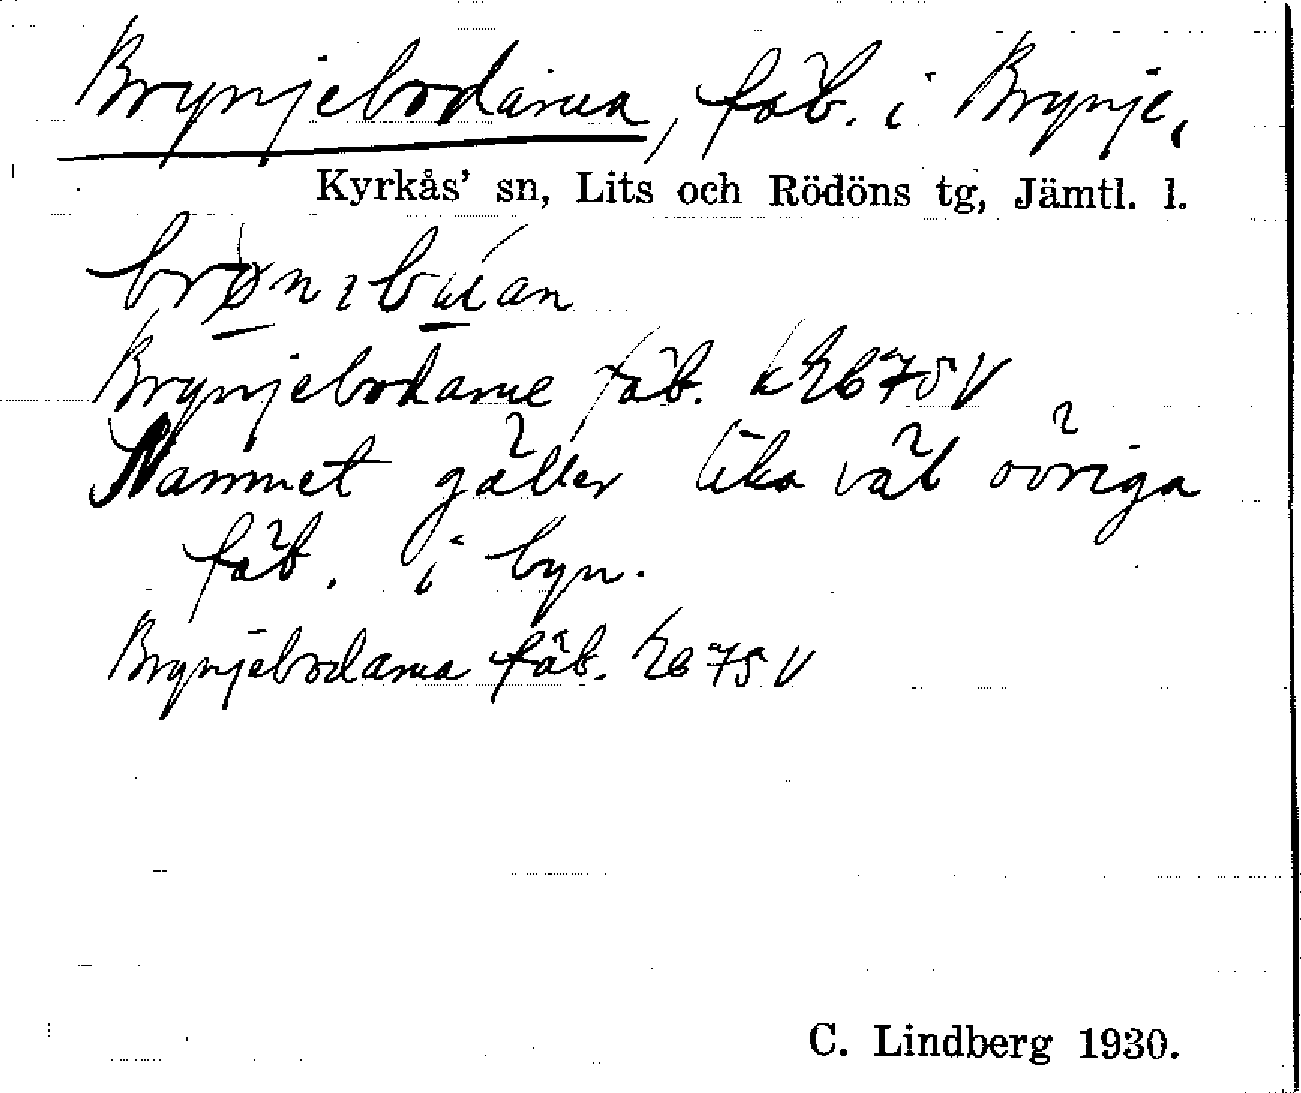 Brynjebodarna, fäb. i Brynje,
Kyrkås' sn, Lits och Rödöns tg, Jämtl. l.
Brynjebodarne fäb. k 2676 V
Nammet gäller lika väl övriga
fäb. i byn.
Brynjebodarna fäb. Eb 75 V
C. Lindberg 1930.